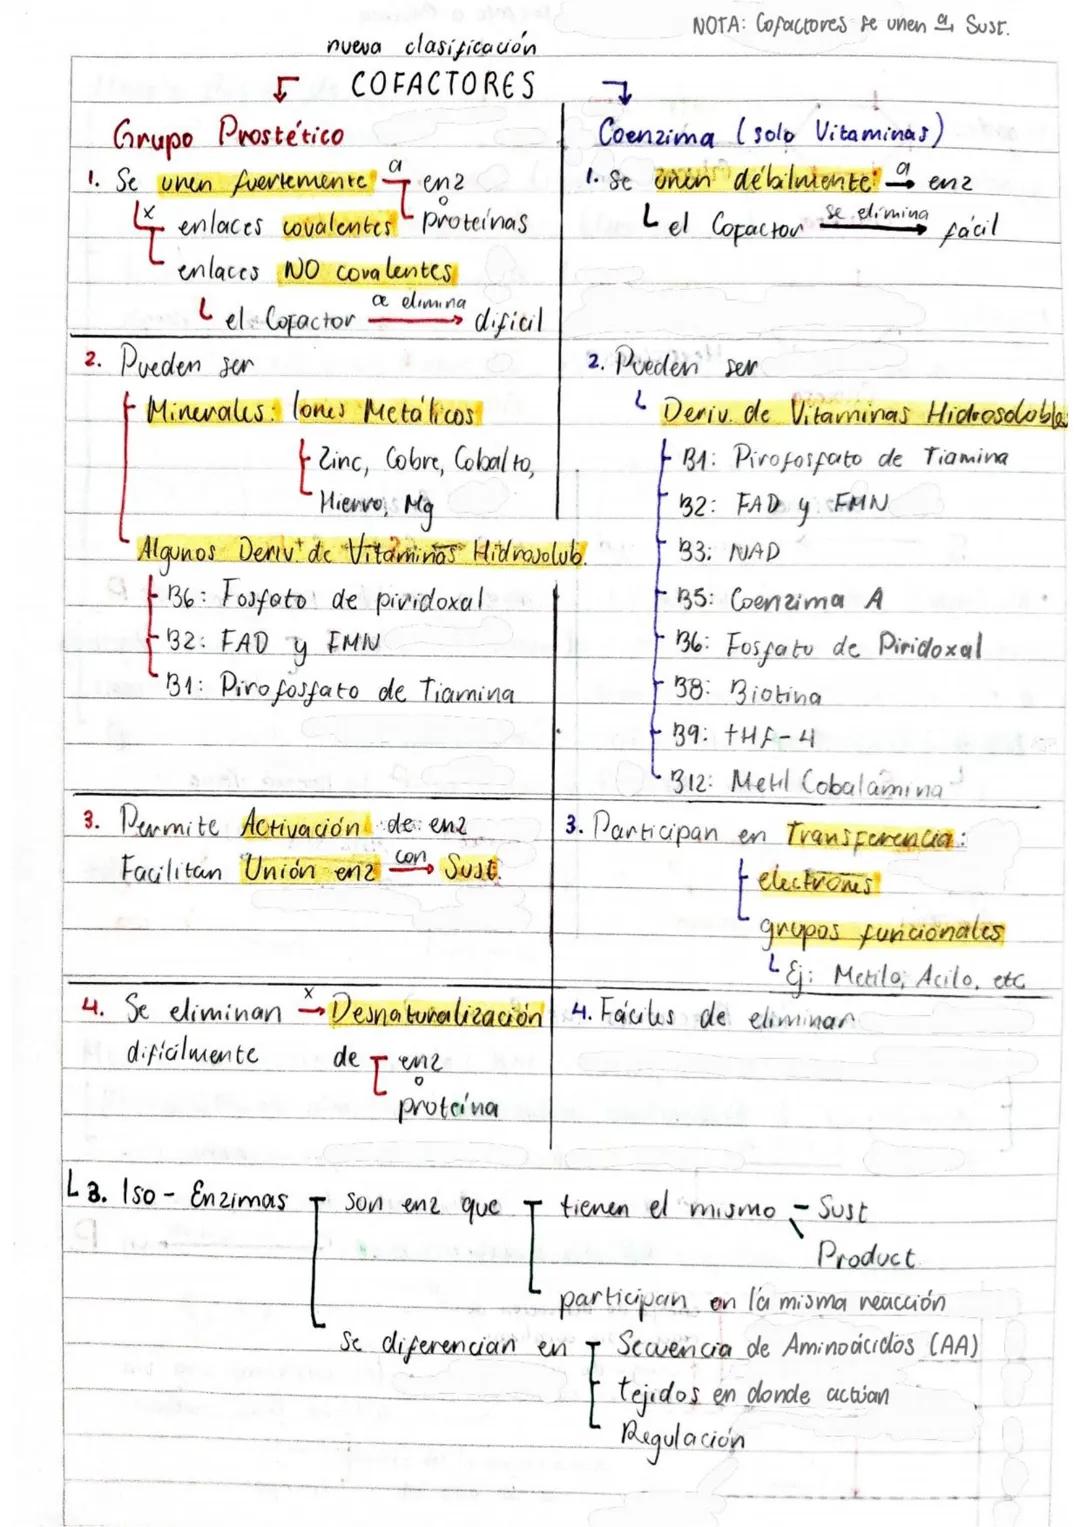 NOTA: Cofactores se unen a Sust.
nueva clasificación
COFACTORES
Grupo Prostético
1. Se unen fuertemente a enz
o
proteínas
x enlaces covalentes
enlaces NO covalentes
el Cofactor se elimina dificil
2. Pueden ser
Minerales: Iones Metálicos
Zinc, Cobre, Cobalto,
Hierro, Mg
Algunos Deriv. de Vitaminas Hidrosolub.
B6: Fosfato de piridoxal
B2: FAD y FMN
B1: Pirofosfato de Tiamina
3. Permite Activación de enz
Facilitan Unión enz con Sust.
4. Se eliminan x Desnaturalización
dificilmente de enz
o
proteína
Coenzima (solo Vitaminas)
1. Se unen débilmente a enz
el Cofactor se elimina fácil
2. Pueden ser
Deriv. de Vitaminas Hidrosolubles
B1: Pirofosfato de Tiamina
B2: FAD y FMN
B3: NAD
B5: Coenzima A
B6: Fosfato de Piridoxal
B8: Biotina
B9: THF-4
B12: Metil Cobalamina
3. Participan en Transferencia:
electrones
grupos funcionales
Ej: Metilo, Acilo, etc
4. Fáciles de eliminar
3. Iso-Enzimas son enz que tienen el mismo Sust
Product
participan en la misma reacción
Se diferencian en Secuencia de Aminoácidos (AA)
tejidos en donde actúan
Regulación